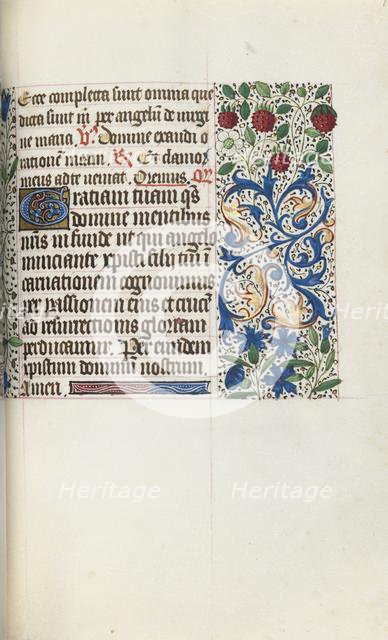 Ecce completa sunt omnia que
dicta sunt in per angelū de virgi
ne maria. V. Domine exaudi o
rationem meam. R. Et clamor
meus ad te veniat. Oremus. Or
Gratiam tuam qs
domine mentibus
nris infunde ut qui angelo
nunciante xpisti filij tui in
carnationem cognovimus
per passionem eius et crucē
ad resurrectionis gloriam
perducamur. Per eundem
xpistum dominum nostrum
Amen.
Heritage Heritage
Heritage Heritage